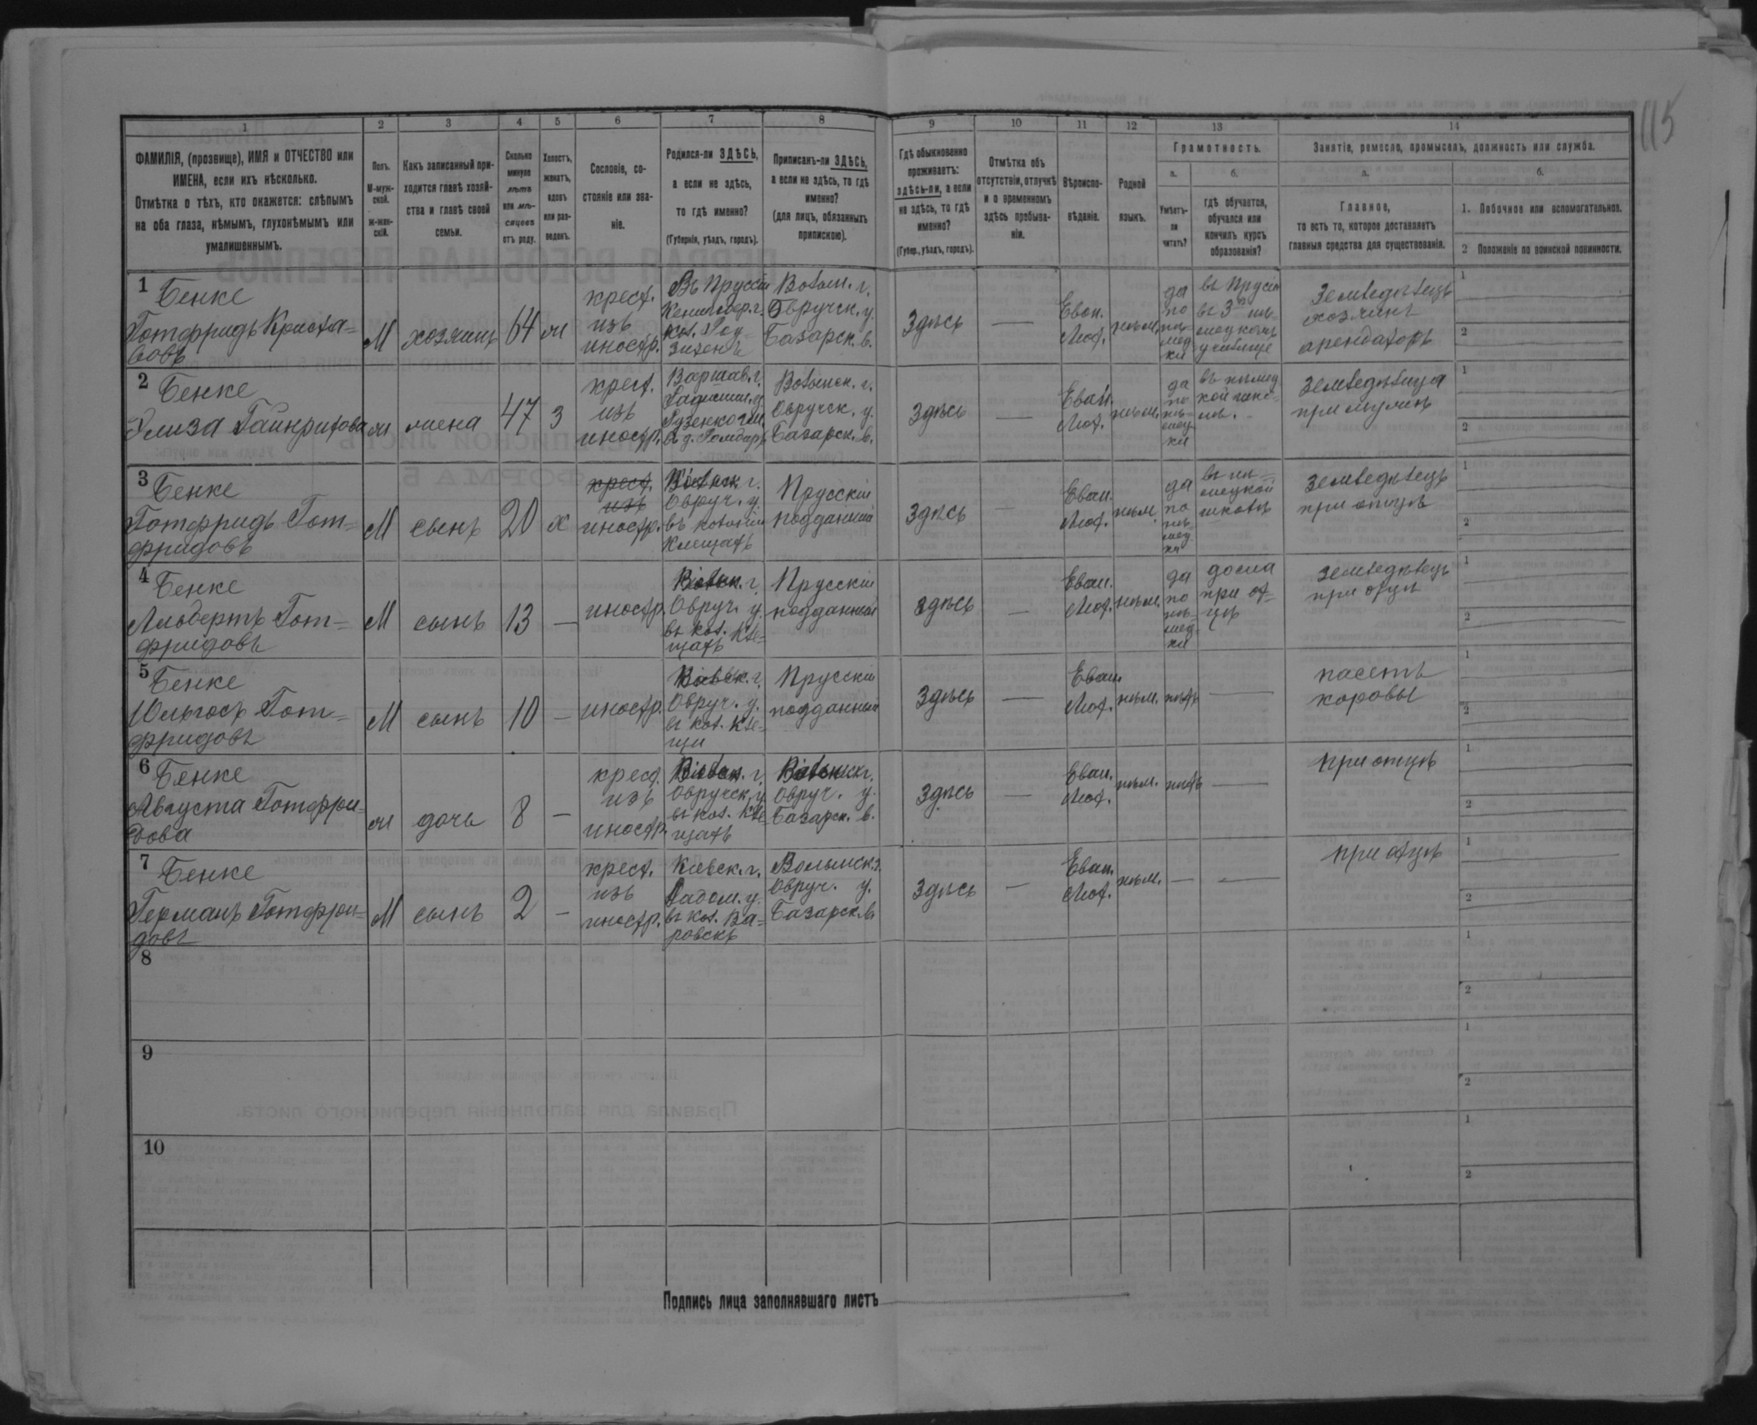 115
1 2 3 4 5 6 7 8 9 10 11 12 13 14
ФАМИЛІЯ, (прозвище), ИМЯ и ОТЧЕСТВО или
ИМЕНА, если ихъ нѣсколько.
Отмѣтка о тѣхъ, кто окажется: слѣпымъ
на оба глаза, нѣмымъ, глухонѣмымъ или
умалишеннымъ.
Полъ.
М-муж-
ской.
Ж-жен-
скій.
Какъ записанный при-
ходится главѣ хозяй-
ства и главѣ своей
семьи.
Сколько
минуло
лѣтъ
или мѣ-
сяцевъ
отъ роду.
Холостъ,
женатъ,
вдовъ
или раз-
веденъ.
Сословіе, со-
стояніе или зва-
ніе.
Родился-ли ЗДѢСЬ,
а если не здѣсь,
то гдѣ именно?
(Губернія, уѣздъ, городъ).
Приписанъ-ли ЗДѢСЬ,
а если не здѣсь, то гдѣ
именно?
(для лицъ, обязанныхъ
припискою).
Гдѣ обыкновенно
проживаетъ:
здѣсь-ли, а если
не здѣсь, то гдѣ
именно?
(Губер., уѣздъ, городъ).
Отмѣтка объ
отсутствіи, отлучкѣ
и о временномъ
здѣсь пребыва-
ніи.
Вѣроиспо-
вѣданіе.
Родной
языкъ.
Грамотность.
а.
Умѣетъ-
ли
читать?
б.
гдѣ обучается,
обучался или
кончилъ курсъ
образованія?
Занятіе, ремесло, промыселъ, должность или служба.
а.
Главное,
то есть то, которое доставляетъ
главныя средства для существованія.
б.
1. Побочное или вспомогательное.
2 Положеніе по воинской повинности.
1 Бенке
Готфридъ Криста-
М хозяинъ 64
крест.
изъ
иностр.
Въ Пруссіи
Волын. г.
Овручск. у.
Базарск. в.
Здѣсь —
Еван.
Лют.
нѣм.
да
по
нѣ-
мец-
ки
въ Прусіи
училище
земледѣлецъ
хозяинъ
арендаторъ
1
2
2 Бенке
Элиза Гайнрихова
ж жена 47 з
крест.
изъ
иностр.
Варшав. г.
Волынск. г.
Овручск. у.
Базарск. в.
Здѣсь —
Еван.
Лют.
нѣм.
да
по
нѣ-
мец-
ки
земледѣлица
при мужѣ
1
2
3 Бенке
Готфридъ Гот-
фридовъ
М сынъ 20 х
крест.
изъ
иностр.
Овруч. у.
въ колоніи
Прусскій
подданный
Здѣсь —
Еван.
Лют.
нѣм.
да
по
нѣ-
мец-
ки
въ нѣ-
мецкой
школѣ
земледѣлецъ
при отцѣ
1
2
4 Бенке
Альбертъ Гот-
фридовъ
М сынъ 13 —
иностр.
Овруч. у.
въ кол. Кле-
щахъ
Прусскій
подданный
здѣсь —
Еван.
Лют.
нѣм.
да
по
нѣ-
мец-
ки
дома
при от-
цѣ
земледѣлецъ
при отцѣ
1
2
5 Бенке
Юльгосъ Гот-
фридовъ
М сынъ 10 —
иностр.
Овруч. у.
въ кол. Кле-
щи
Прусскій
подданный
Здѣсь —
Еван.
Лют.
нѣм. нѣтъ —
пасетъ
коровы
1
2
6 Бенке
Августа Готфри-
дова
ж дочь 8 —
крест.
изъ
иностр.
Овручск. у.
въ кол. Кле-
щахъ
Овруч. у.
Базарск. в.
Здѣсь —
Еван.
Лют.
нѣм. нѣтъ —
при отцѣ
1
2
7 Бенке
Германъ Готфри-
довъ
М сынъ 2 —
крест.
изъ
иностр.
Кіевск. г.
Радом. у.
въ кол. Ва-
ровскъ
Волынск. г.
Овруч. у.
Базарск. в.
Здѣсь —
Еван.
Лют.
нѣм. — —
при отцѣ
1
2
8
1
2
9
1
2
10
1
2
Подпись лица заполнявшаго листъ